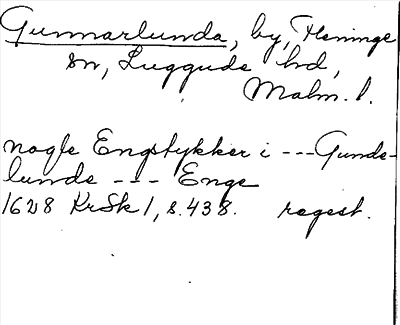 Gunnarlunda, by, Fleninge
sn, Luggude hd,
Malm. l.
nogle Engstykker i --- Gunde-
lunde --- Enge
1628 KrSk 1, s. 438. regest.